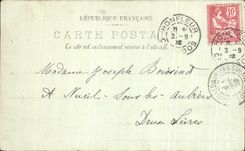 RÉPUBLIQUE FRANÇAISE
CARTE POSTALE
Ce côté est exclusivement réservé à l'adresse
HONFLEUR
3-9
02
10
Madame Joseph
A Nueil-Sous-les-Aubiers
Deux Sèvres